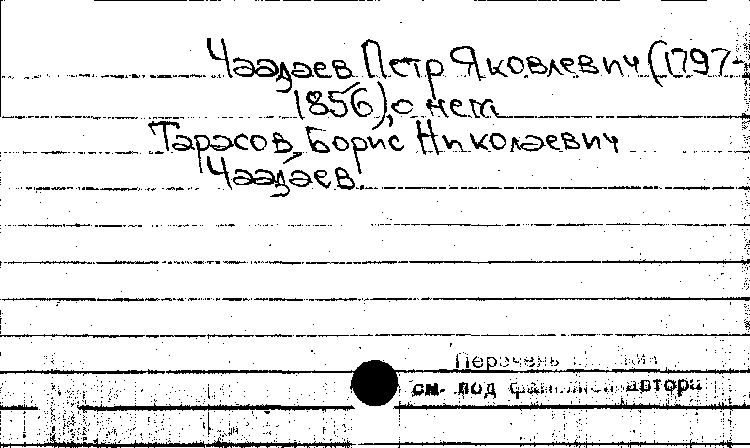 Чаадаев Петр Яковлевич (1797-
1856), о нем
Тарасов, Борис Николаевич
Чаадаев.
Перечень
см. под фамилией автора